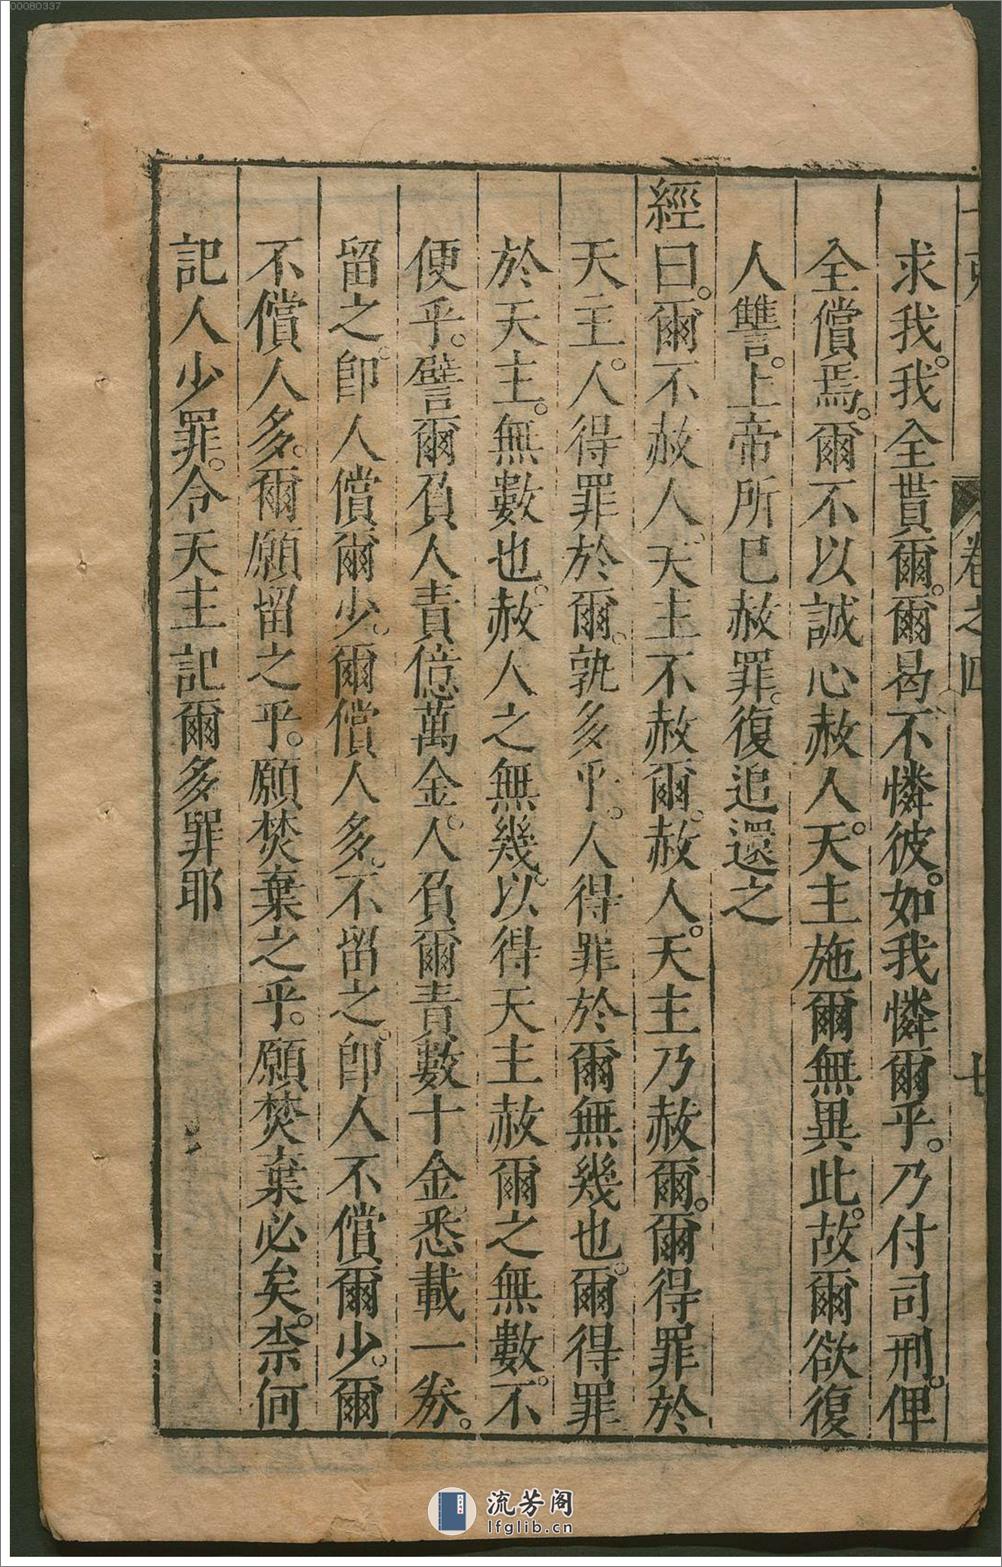 求我我全貰爾爾曷不憐彼如我憐爾乎乃付司刑俾
全償焉爾不以誠心赦人天主施爾無異此故爾欲復
人讐上帝所已赦罪復追還之
經曰爾不赦人天主不赦爾赦人天主乃赦爾爾得罪於
天主人得罪於爾孰多乎人得罪於爾無幾也爾得罪
於天主無數也赦人之無幾以得天主赦爾之無數不
便乎譬爾負人責億萬金人負爾責數十金悉載一券
留之卽人償爾少爾償人多不留之卽人不償爾少爾
不償人多爾願留之乎願焚棄之乎願焚棄必矣柰何
記人少罪令天主記爾多罪耶
卷之四
七
00080337
流芳阁
lfglib.cn